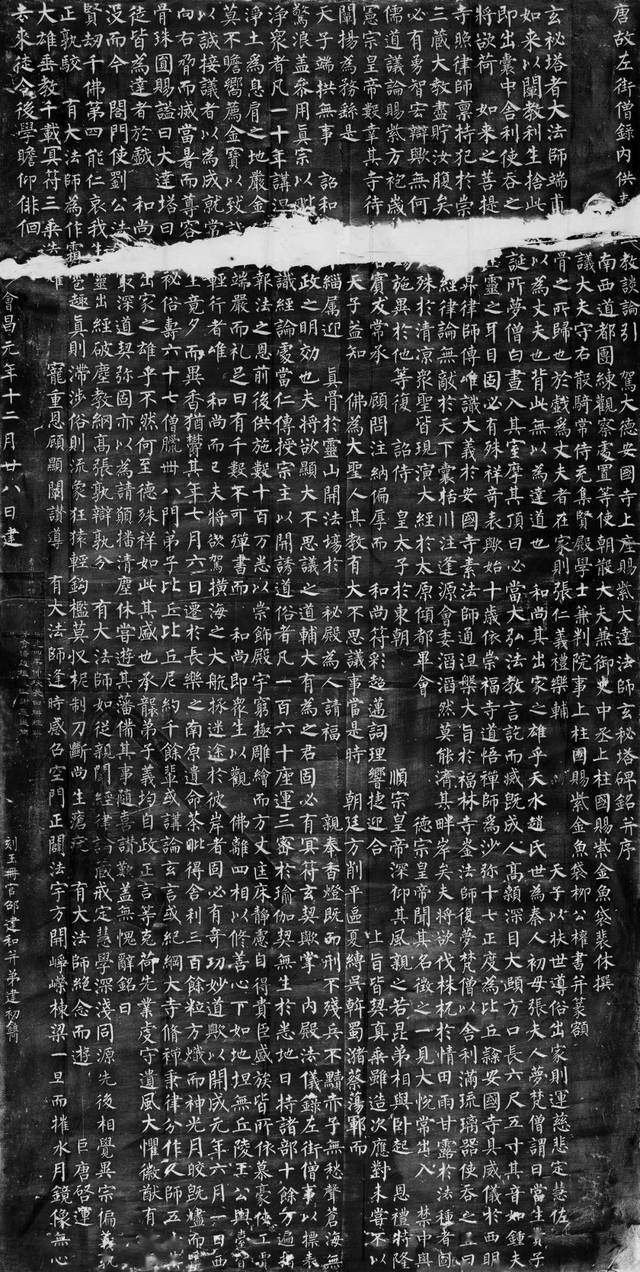 唐故左街僧錄內供 教談論引 駕大德安國寺上座賜紫大達法師玄秘塔碑銘并序
南西道都團練觀察處置等使朝散大夫兼御史中丞上柱國賜紫金魚袋裴休撰
議大夫守右散騎常侍充集賢殿學士兼判院事上柱國賜紫金魚袋柳公權書并篆額
玄秘塔者大法師端甫 骨之所歸也於戲為丈夫者在家則張仁義禮樂輔 天子以扶世導俗出家則運慈悲定慧佐
如來以闡教利生捨此 以為丈夫也背此無以為達道也 和尚其出家之雄乎天水趙氏世為秦人初母張夫人夢梵僧謂曰當生貴子
即出囊中舍利使吞之 誕所夢僧白晝入其室摩其頂曰必當大弘法教言訖而滅既成人高顙深目大頤方口長六尺五寸其音如鍾夫
將欲荷 如來之菩提 生靈之耳目固必有殊祥奇表歟始十歲依崇福寺道悟禪師為沙彌十七正度為比丘隸安國寺具威儀於西明
寺照律師稟持犯於崇 昇律師傳唯識大義於安國寺素法師通涅槃大旨於福林寺崟法師復夢梵僧以舍利滿琉璃器使吞之且曰
三藏大教盡貯汝腹矣 經律論無敵於天下囊括川注逢源會委滔滔然莫能濟其畔岸矣夫將欲伐株杌於情田雨甘露於法種者固
必有勇智宏辯歟無何 殊於清涼眾聖皆現演大經於太原傾都畢會 德宗皇帝聞其名徵之一見大悅常出入 禁中與
儒道議論賜紫方袍歲 錫施異於他等復 詔侍 皇太子於東朝 順宗皇帝深仰其風親之若昆弟相與臥起 恩禮特隆
憲宗皇帝數幸其寺待 賓友常承 顧問注納偏厚而 和尚符彩超邁詞理響捷迎合 上旨皆契真乘雖造次應對未嘗不以
闡揚為務繇是 天子益知 佛為大聖人其教有大不思議事當是時 朝廷方削平區夏縛吳斡蜀瀦蔡蕩鄆而
天子端拱無事 詔和 緇屬迎 真骨於靈山開法場於 秘殿為人請福 親奉香燈既而刑不殘兵不黷赤子無愁聲蒼海無
驚浪蓋參用真宗以毗 政之明効也夫將欲顯大不思議之道輔大有為之君固必有冥符玄契歟掌 內殿法儀錄左街僧事以標表
淨眾者凡一十年講涅 識經論處當仁傳授宗主以開誘道俗者凡一百六十座運三密於瑜伽契無生於悉地日持諸部十餘万遍指
淨土為息肩之地嚴金 報法之恩前後供施數十百万悉以崇飾殿宇窮極雕繪而方丈匡床靜慮自得貴臣盛族皆所依慕豪俠工賈
莫不瞻嚮薦金寶以致 端嚴而礼足日有千數不可殫書而 和尚即眾生以觀 佛離四相以修善心下如地坦無丘陵王公輿臺
以誠接議者以為成就常 輕行者唯 和尚而已夫將欲駕橫海之大航拯迷途於彼岸者固必有奇功妙道歟以開成元年六月一日西
向右脅而滅當暑而尊容 生竟夕而異香猶鬱其年七月六日遷於長樂之南原遺命荼毗得舍利三百餘粒方熾而神光月皎既燼而靈
骨珠圓賜謚曰大達塔曰 秘俗壽六十七僧臘卌八門弟子比丘比丘尼約千餘輩或講論玄言或紀綱大寺脩禪秉律分作人師五十
徒皆為達者於戲 和尚 出家之雄乎不然何至德殊祥如此其盛也承襲弟子義均自政正言等克荷先業虔守遺風大懼徽猷有
沒而今 閤門使劉公法 最深道契弥固亦以為請願播清塵休嘗遊其藩備其事隨喜讚歎蓋無愧辭銘曰
賢劫千佛第四能仁哀我生 靈出經破塵教網高張孰辯孰分 有大法師如從親聞經律論藏戒定慧學深淺同源先後相覺異宗偏義孰
正孰駮 有大法師為作霜雹趣真則滯涉俗則流象狂猿輕鈎檻莫收柅制刀斷尚生瘡疣 有大法師絕念而遊 巨唐啓運
大雄垂教千載冥符三乘迭 寵重恩顧顯闡讚導 有大法師逢時感召空門正闢法宇方開崢嶸棟梁一旦而摧水月鏡像無心
去來徒令後學瞻仰徘徊
會昌元年十二月廿八日建 刻玉冊官邵建和并弟建初鐫